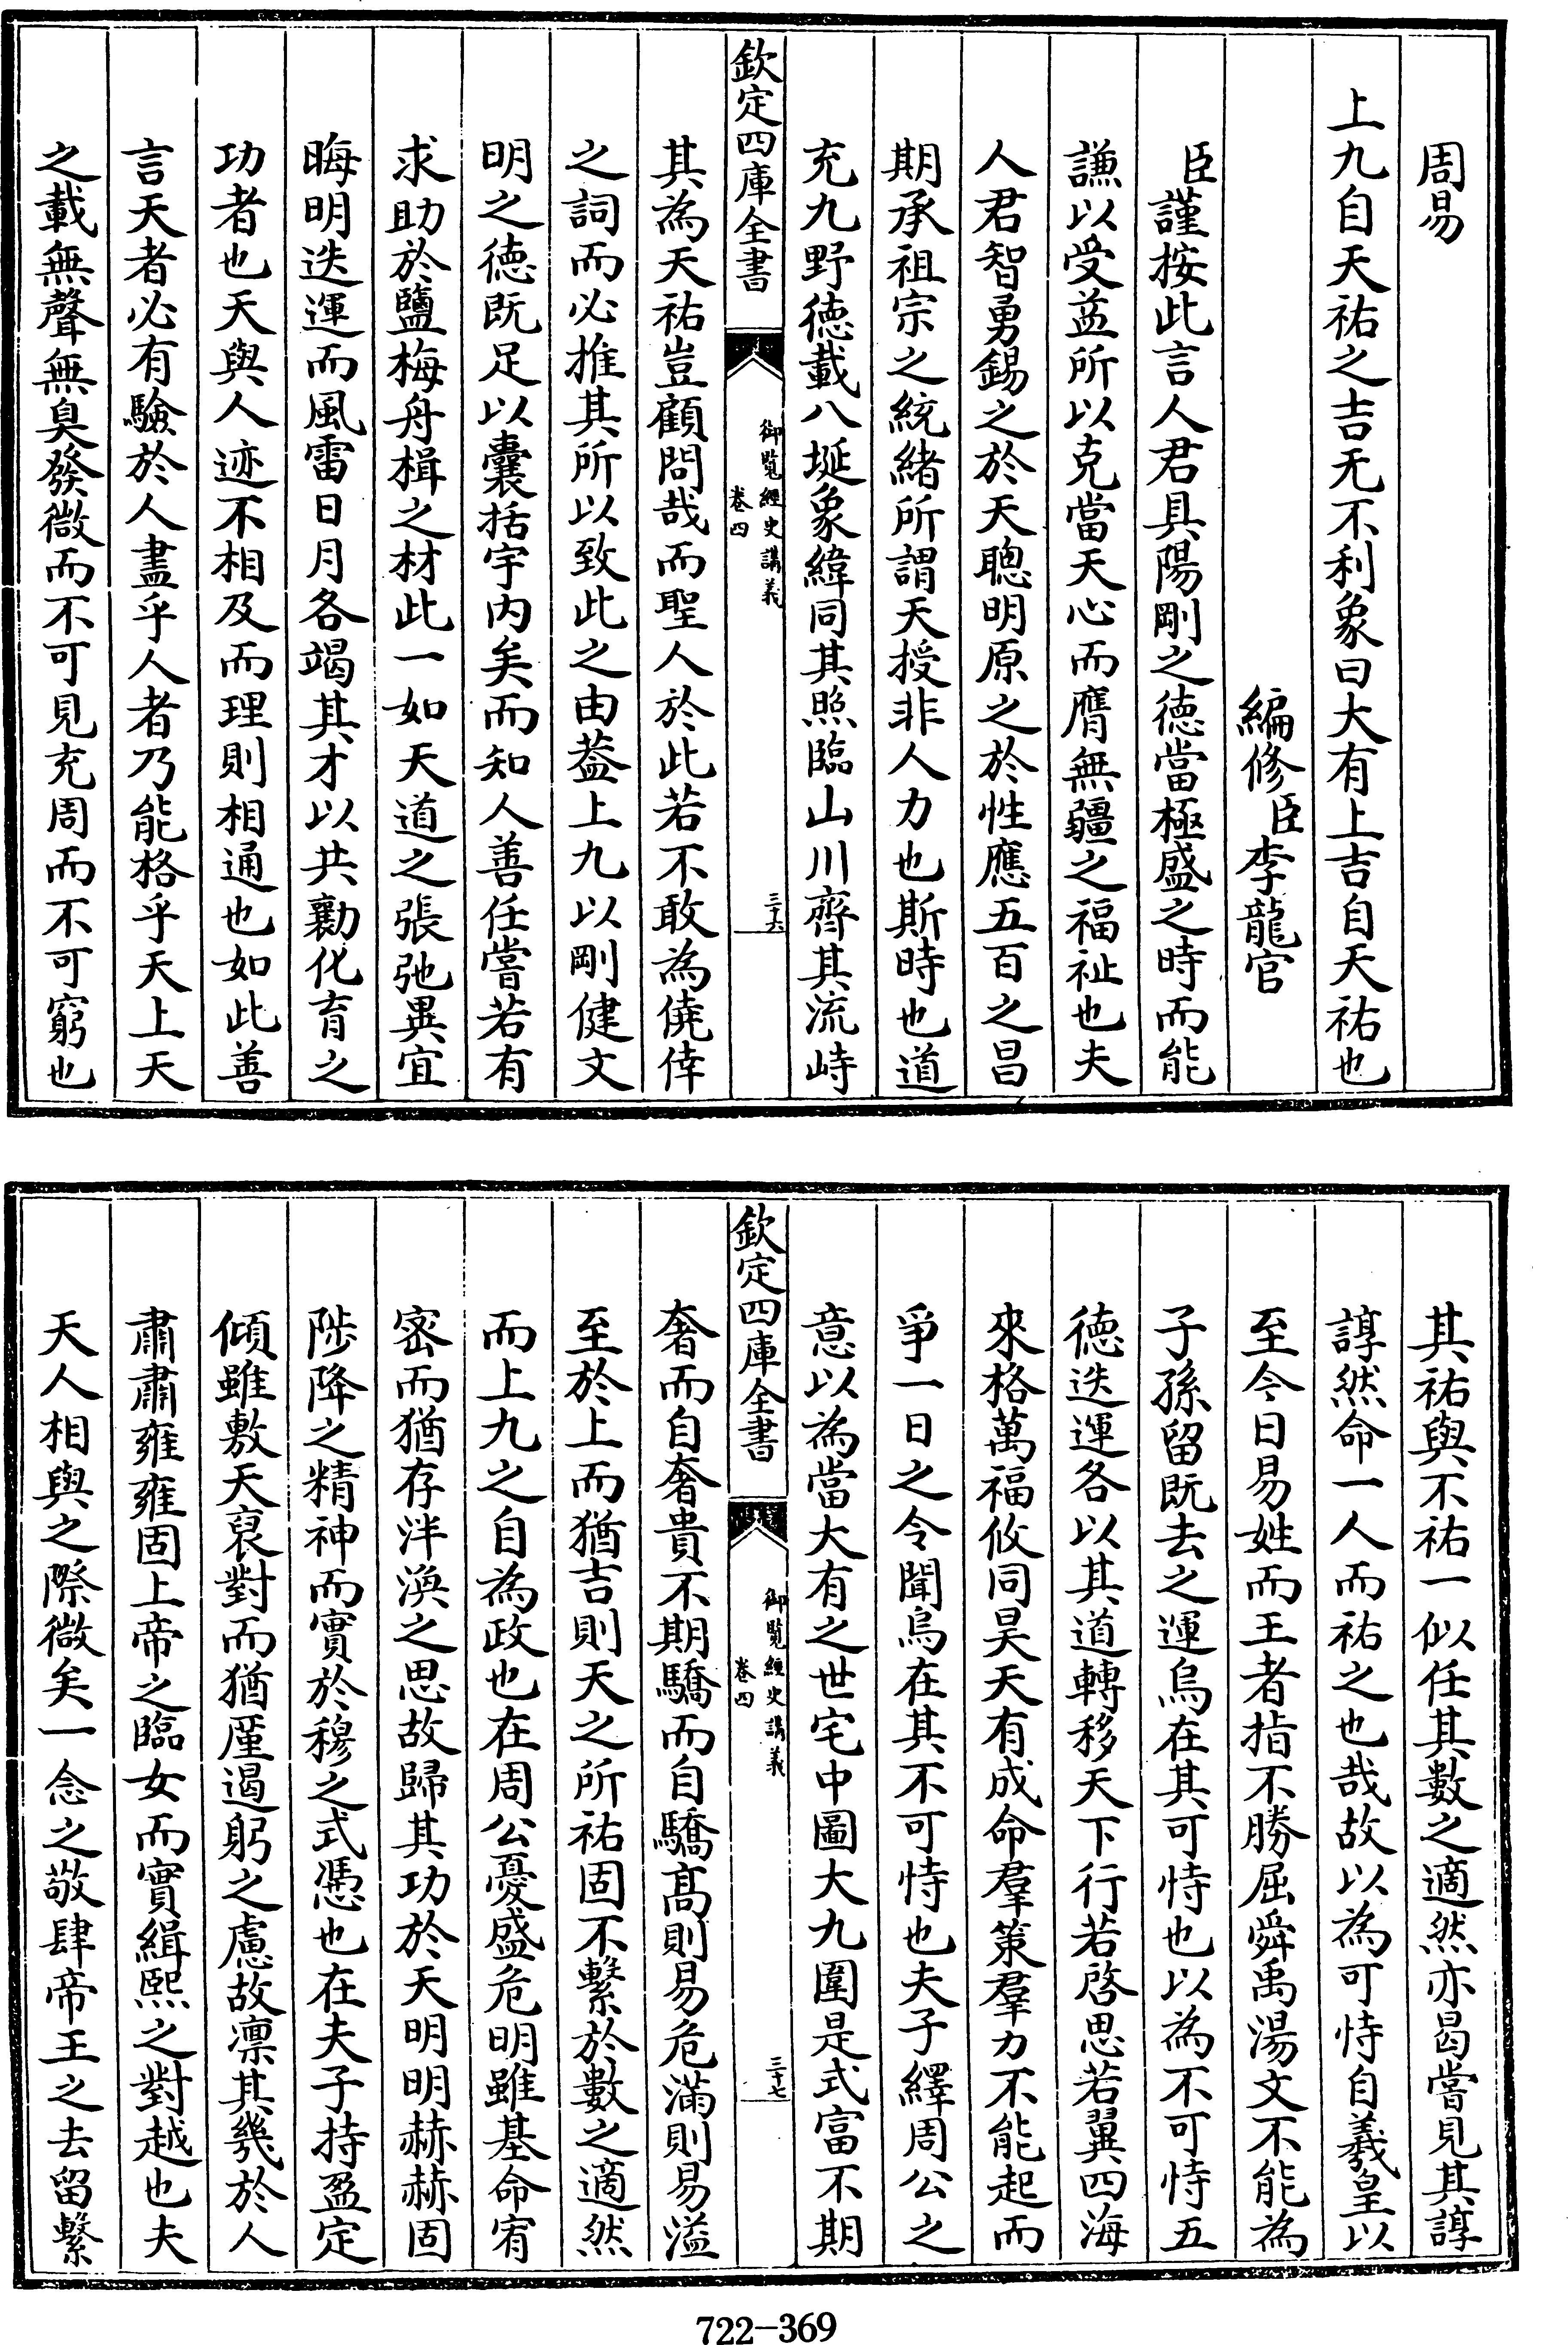 周易
上九自天祐之吉无不利象曰大有上吉自天祐也
編修臣李龍官
臣謹按此言人君具陽剛之德當極盛之時而能
謙以受益所以克當天心而膺無疆之福祉也夫
人君智勇錫之於天聰明原之於性應五百之昌
期承祖宗之統緒所謂天授非人力也斯時也道
充九野德載八埏象緯同其照臨山川齊其流峙
欽定四庫全書
御覽經史講義
卷四
三十六
其為天祐豈顧問哉而聖人於此若不敢為僥倖
之詞而必推其所以致此之由葢上九以剛健文
明之德既足以囊括宇內矣而知人善任嘗若有
求助於鹽梅舟楫之材此一如天道之張弛異宜
晦明迭運而風雷日月各竭其才以共勷化育之
功者也天與人迹不相及而理則相通也如此善
言天者必有驗於人盡乎人者乃能格乎天上天
之載無聲無臭發微而不可見充周而不可窮也
其祐與不祐一似任其數之適然亦曷嘗見其諄
諄然命一人而祐之也哉故以為可恃自羲皇以
至今日易姓而王者指不勝屈舜禹湯文不能為
子孫留既去之運烏在其可恃也以為不可恃五
德迭運各以其道轉移天下行若啓思若翼四海
來格萬福攸同昊天有成命羣策羣力不能起而
爭一日之令聞烏在其不可恃也夫子繹周公之
意以為當大有之世宅中圖大九圍是式富不期
欽定四庫全書
御覽經史講義
卷四
三十七
奢而自奢貴不期驕而自驕高則易危滿則易溢
至於上而猶吉則天之所祐固不繫於數之適然
而上九之自為政也在周公憂盛危明雖基命宥
密而猶存泮渙之思故歸其功於天明明赫赫固
陟降之精神而實於穆之式憑也在夫子持盈定
傾雖敷天裒對而猶厪遏躬之慮故凛其幾於人
肅肅雍雍固上帝之臨女而實緝熙之對越也夫
天人相與之際微矣一念之敬肆帝王之去留繫
722-369